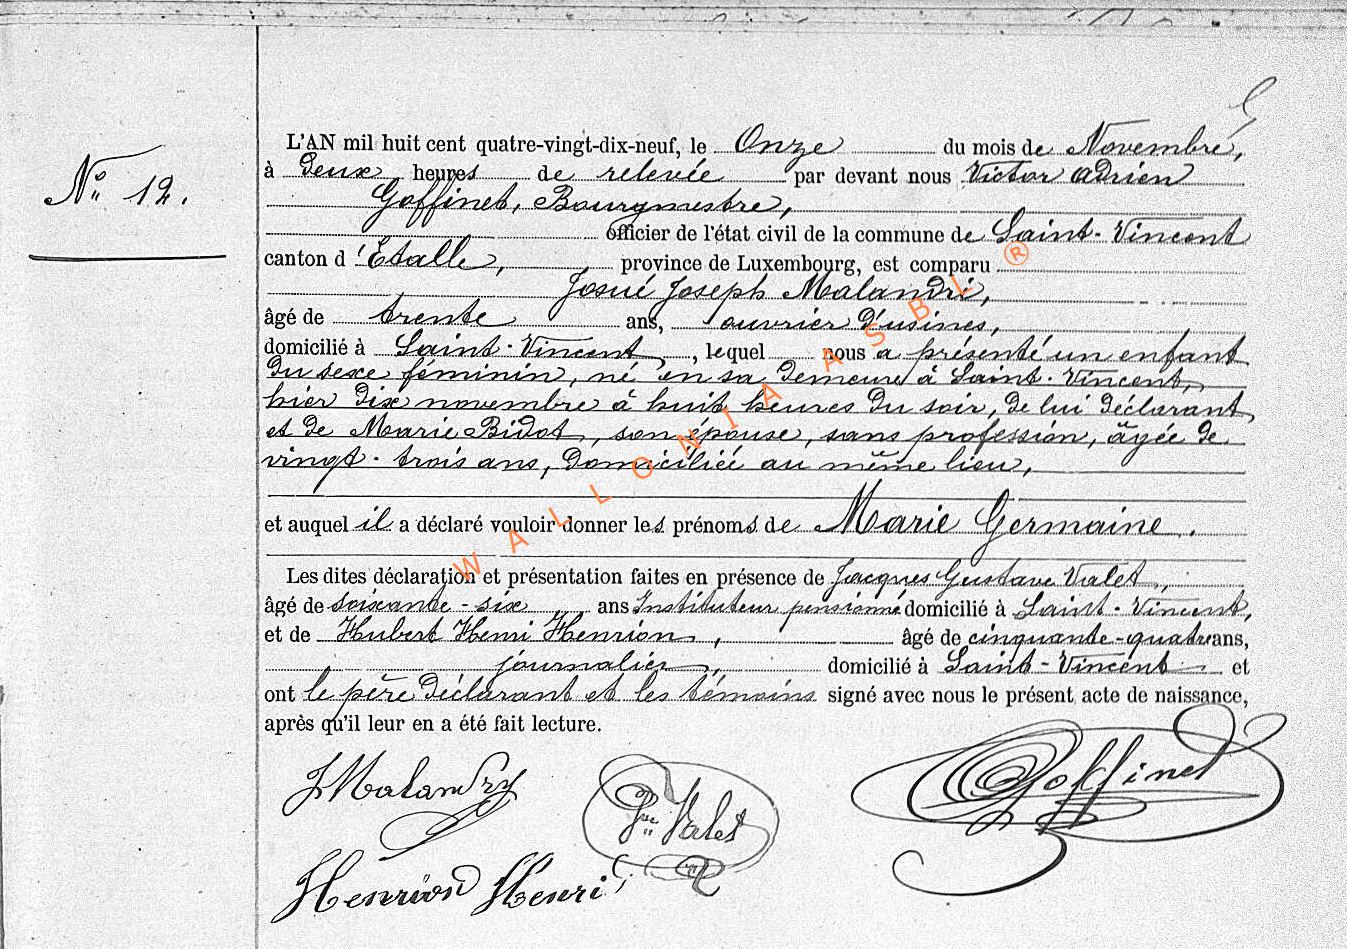 L'AN mil huit cent quatre-vingt-dix-neuf, le Onze du mois de Novembre,
N° 12.
à deux heures de relevée par devant nous Victor Adrien
Goffinet, Bourgmestre,
officier de l'état civil de la commune de Saint-Vincent
canton d'Etalle, province de Luxembourg, est comparu
Josué Joseph Malandri,
âgé de trente ans, ouvrier d'usines,
domicilié à Saint-Vincent, lequel nous a présenté un enfant
du sexe féminin, né en sa demeure à Saint-Vincent,
hier dix novembre à huit heures du soir, de lui déclarant
et de Marie Bidot, son épouse, sans profession, âgée de
vingt-trois ans, domiciliée au même lieu,
et auquel il a déclaré vouloir donner les prénoms de Marie Germaine.
Les dites déclaration et présentation faites en présence de Jacques Gustave Valet,
âgé de soixante-six ans Instituteur pensionné domicilié à Saint-Vincent,
et de Hubert Henri Henrion, âgé de cinquante-quatre ans,
journalier, domicilié à Saint-Vincent et
ont le père déclarant et les témoins signé avec nous le présent acte de naissance,
après qu'il leur en a été fait lecture.
JMalandry
Valet
Goffinet
Henrion Henri
WALLONIA ASBL ®